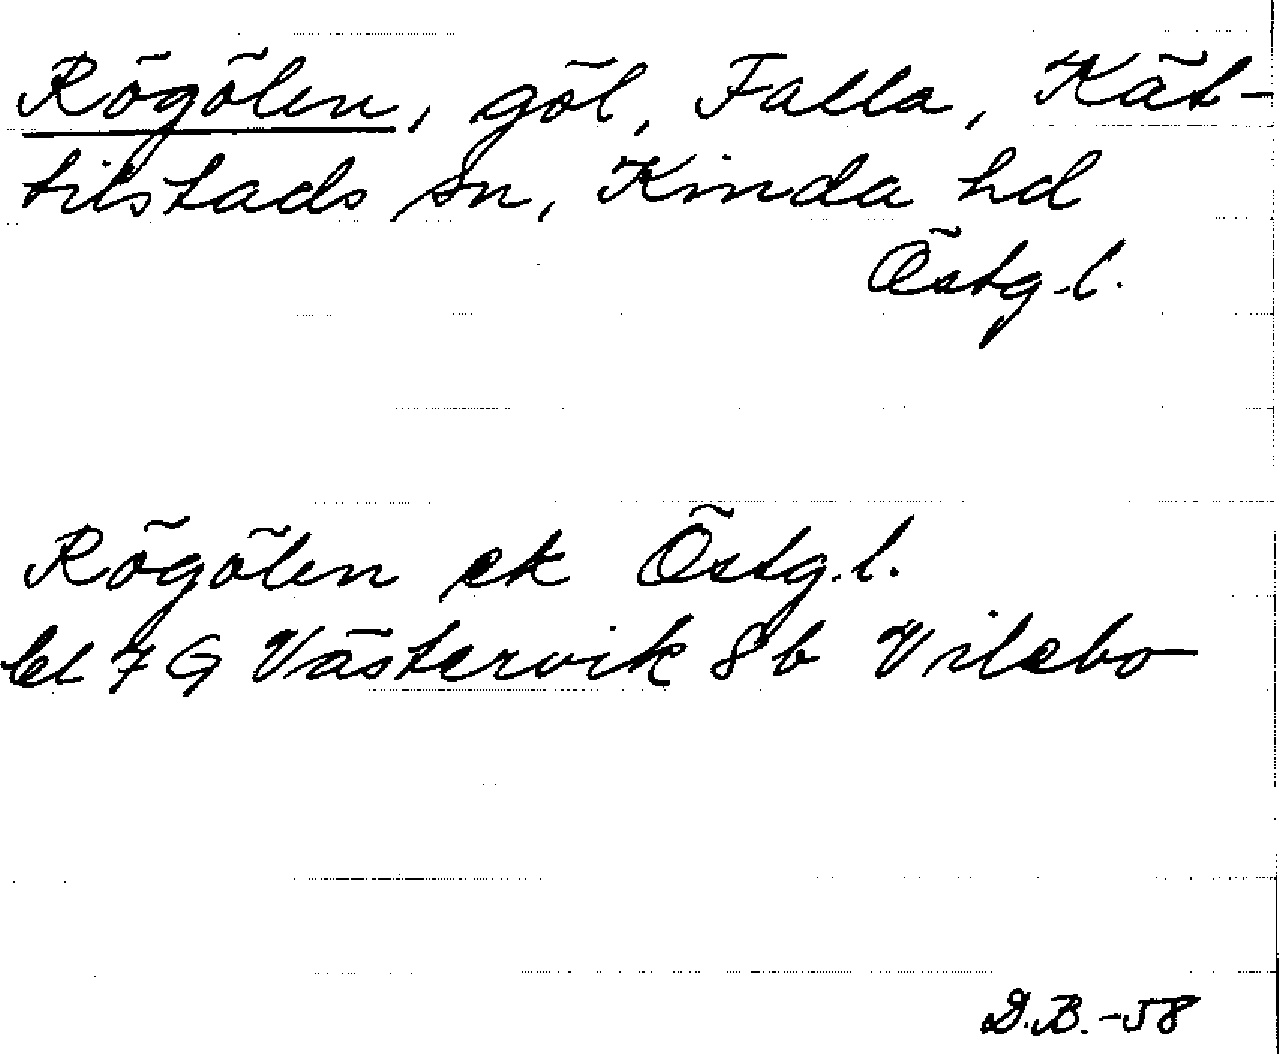 Rögölen, göl, Falla, Kät-
tilstads sn, Kinda hd
Östg.l.
Rögölen ek Östg.l.
bl 7 G Västervik 8b Vilebo
D.B. -58